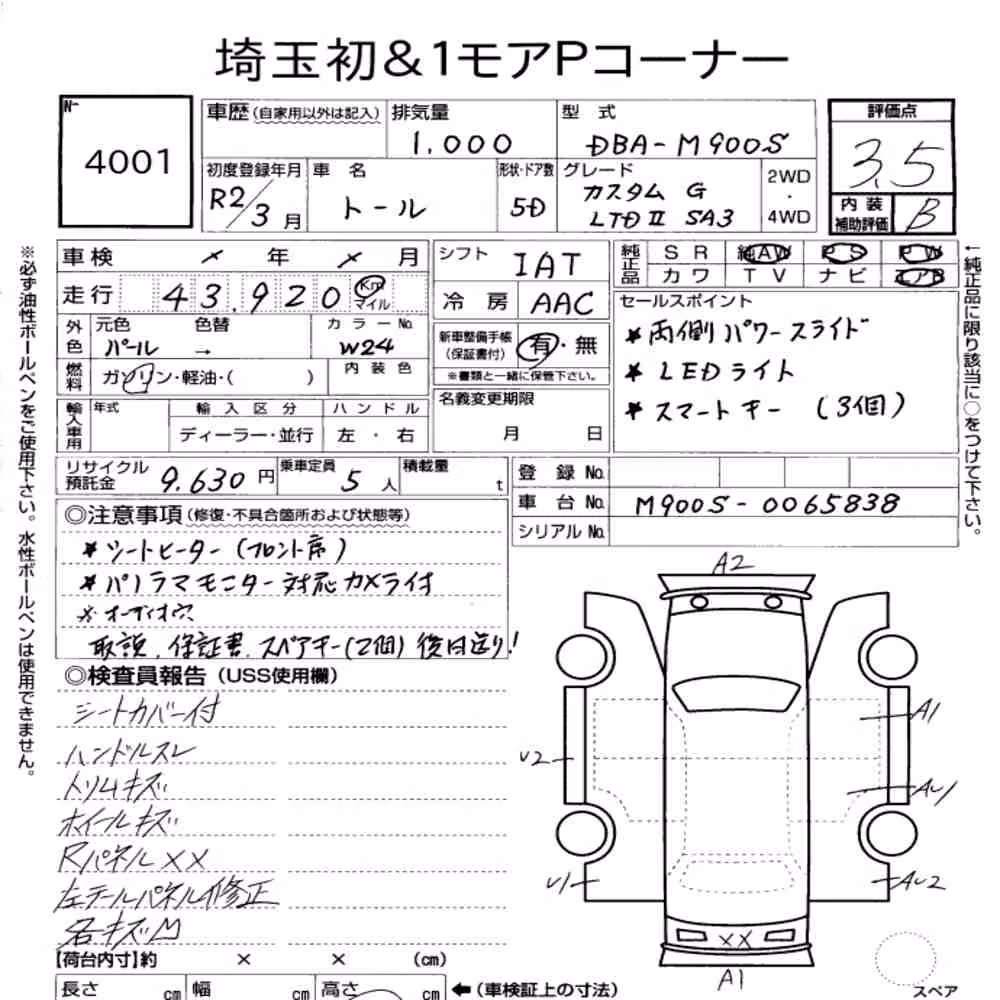 埼玉初&1モアPコーナー
No 4001
車歴(自家用以外は記入) 排気量 1.000 型式 DBA-M900S
評価点 3.5
初度登録年月 R2/3月 車名 トール 形状・ドア数 5D グレード カスタム G LTDⅡ SA3 2WD・4WD
内装補助評価 B
車検 × 年 × 月
走行 43.920 Km マイル
外色 元色 パール 色替 → カラーNo. W24
燃料 ガソリン・軽油・( ) 内装色
輸入車用 年式 輸入区分 ディーラー・並行 ハンドル 左・右
シフト IAT
冷房 AAC
新車整備手帳(保証書付) 有・無
※書類と一緒に保管下さい。
名義変更期限 月 日
純正品 SR 純AW PS PW
カワ TV ナビ エアB
セールスポイント
★両側パワースライド
★LEDライト
★スマートキー (3個)
リサイクル預託金 9.630円 乗車定員 5人 積載量 t
登録No.
車台No. M900S-0065838
シリアルNo.
◎注意事項(修復・不具合箇所および状態等)
★シートヒーター(フロント席)
★パノラマモニター対応カメラ付
※オーディオ穴
取説、保証書、スペアキー(2個)後日送り!
◎検査員報告(USS使用欄)
シートカバー付
ハンドルスレ
トリムキズ
ホイールキズ
Rパネル××
左テールパネル修正
各キズM
A2
A1
U2
AU1
U1
AU2
××
A1
スペア
【荷台内寸】約 × × (cm)
長さ cm 幅 cm 高さ cm ←(車検証上の寸法)
※必ず油性ボールペンをご使用下さい。水性ボールペンは使用できません。
←純正品に限り該当に○をつけて下さい。